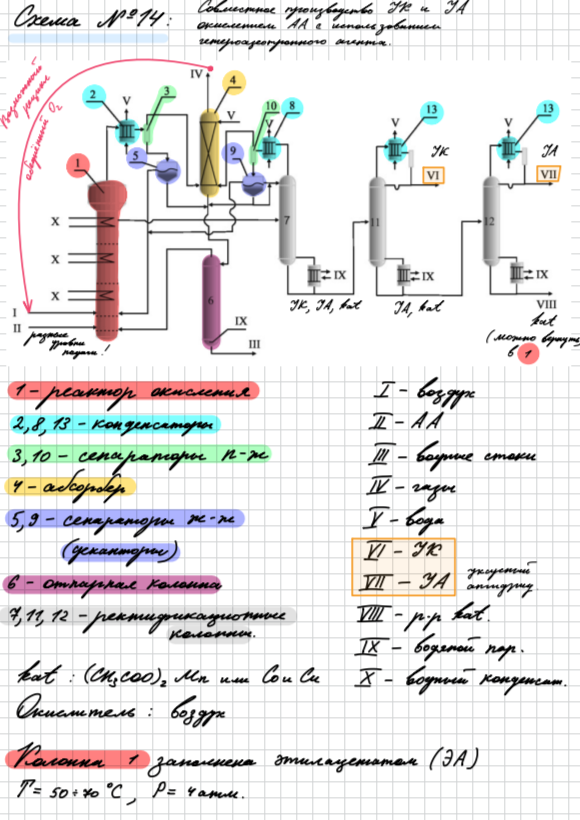 Схема №14:
Совместное производство УК и УА
окислением АА с использованием
гетероазеотропного агента.
Возможный рецикл
абгазной O₂
IV
4
3
2
V
V
10
8
V
13
V
13
V
5
9
УК
УА
VI
VII
1
X
X
X
7
11
12
I
II
разные уровни подачи!
6
IX
III
IX
IX
IX
УК, УА, kat
УА, kat
VIII
kat
(можно вернуть
в 1
1 - реактор окисления
2, 8, 13 - конденсаторы
3, 10 - сепараторы п-ж
4 - абсорбер
5, 9 - сепараторы ж-ж
(деканторы)
6 - отпарная колонна
7, 11, 12 - ректификационные
колонны.
I - воздух
II - АА
III - водные стоки
IV - газы
V - вода
VI - УК
VII - УА
уксусный
ангидрид
VIII - р-р kat.
IX - водяной пар.
X - водный конденсат.
kat : (CH₃COO)₂ Mn или Co и Cu
Окислитель : воздух
Колонна 1 заполнена этилацетатом (ЭА)
T = 50÷70 °C, P = 4 атм.